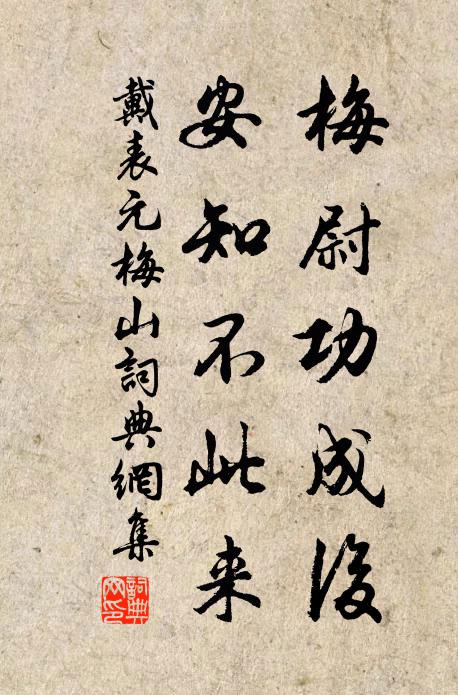 梅尉功成後
安知不此来
戴表元梅山詞典網集
詞典網印